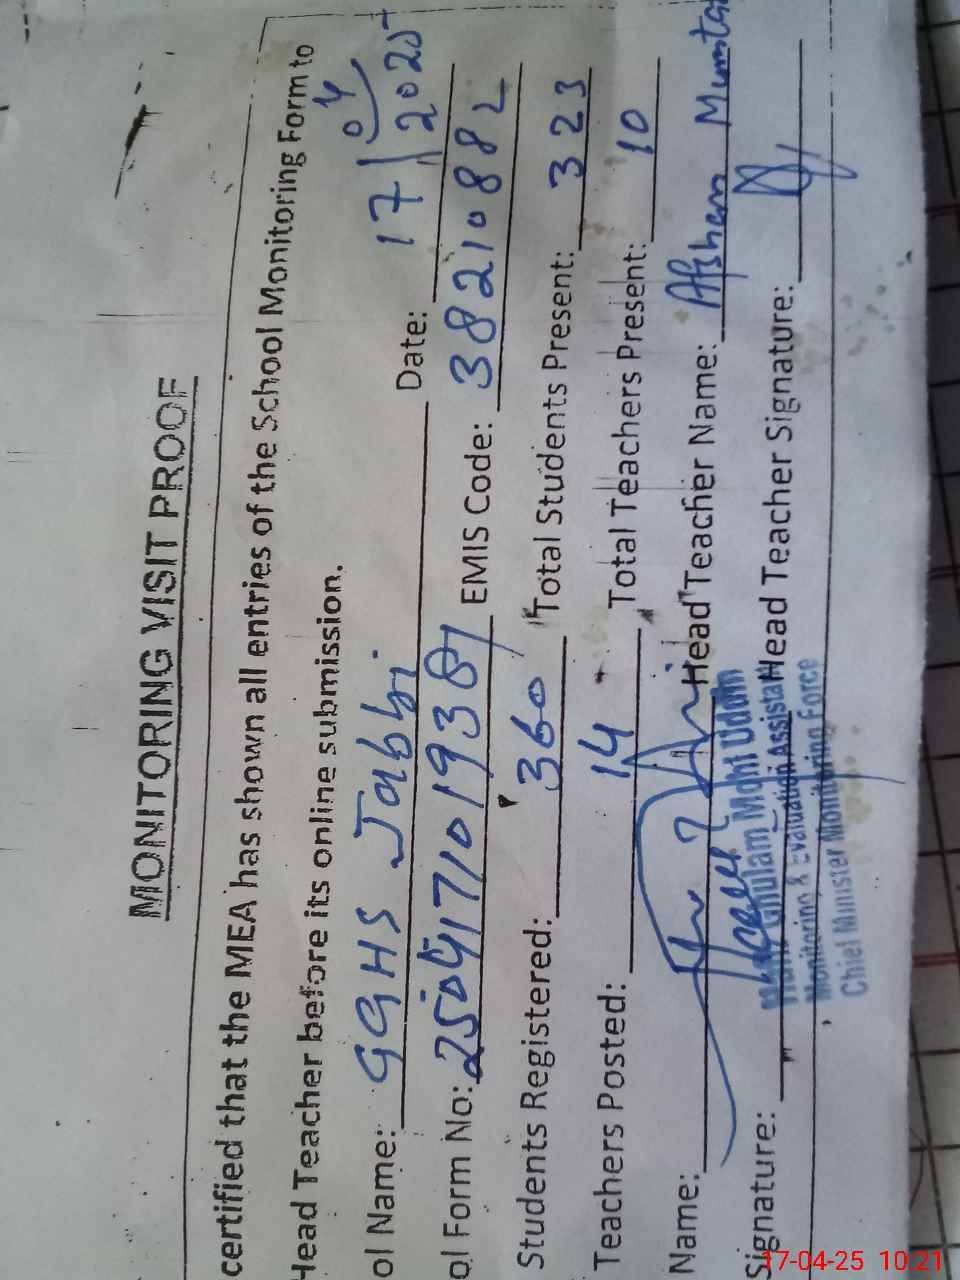 MONITORING VISIT PROOF
certified that the MEA has shown all entries of the School Monitoring Form to
Head Teacher before its online submission.
ol Name: GGHS Jabbi Date: 17/04/2025
ol Form No: 2504171019387 EMIS Code: 38210882
Students Registered: 360 Total Students Present: 323
Teachers Posted: 14 Total Teachers Present: 10
Name: Head Teacher Name: Afshan Mumtaz
Signature: Head Teacher Signature:
Ghulam Mohi Uddin
Monitoring & Evaluation Assistant
Chief Minister Monitoring Force
17-04-25 10:21